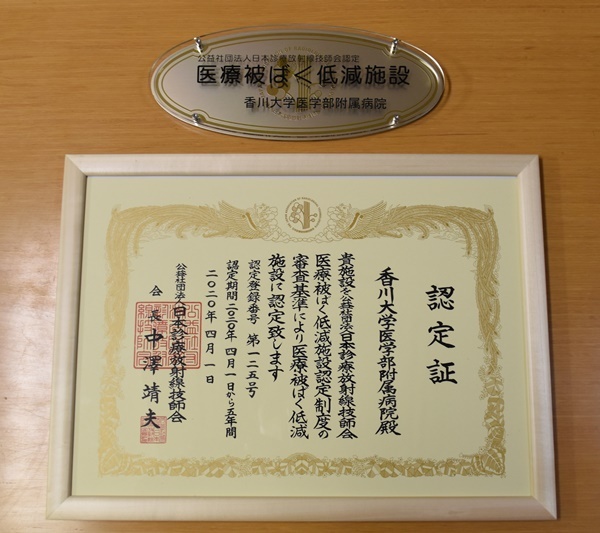 公益社団法人日本診療放射線技師会認定
医療被ばく低減施設
香川大学医学部附属病院
認定証
香川大学医学部附属病院殿
貴施設を公益社団法人日本診療放射線技師会
医療被ばく低減施設認定制度の
審査基準により医療被ばく低減
施設に認定致します
認定登録番号 第一二五号
認定期間 二〇二〇年四月一日から五年間
二〇二〇年四月一日
公益社団法人日本診療放射線技師会
会長 中澤靖夫